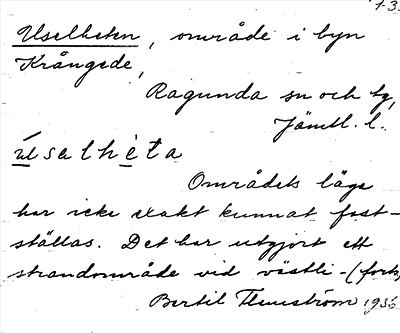 1-3.
Uselheten, område i byn
Krångede,
Ragunda sn och tg,
Jämtl. l.
Området läge
har icke exakt kunnat fast-
ställas. Det har utgjort ett
strandområde vid västli-(forts.
Bertil Flemström 1936